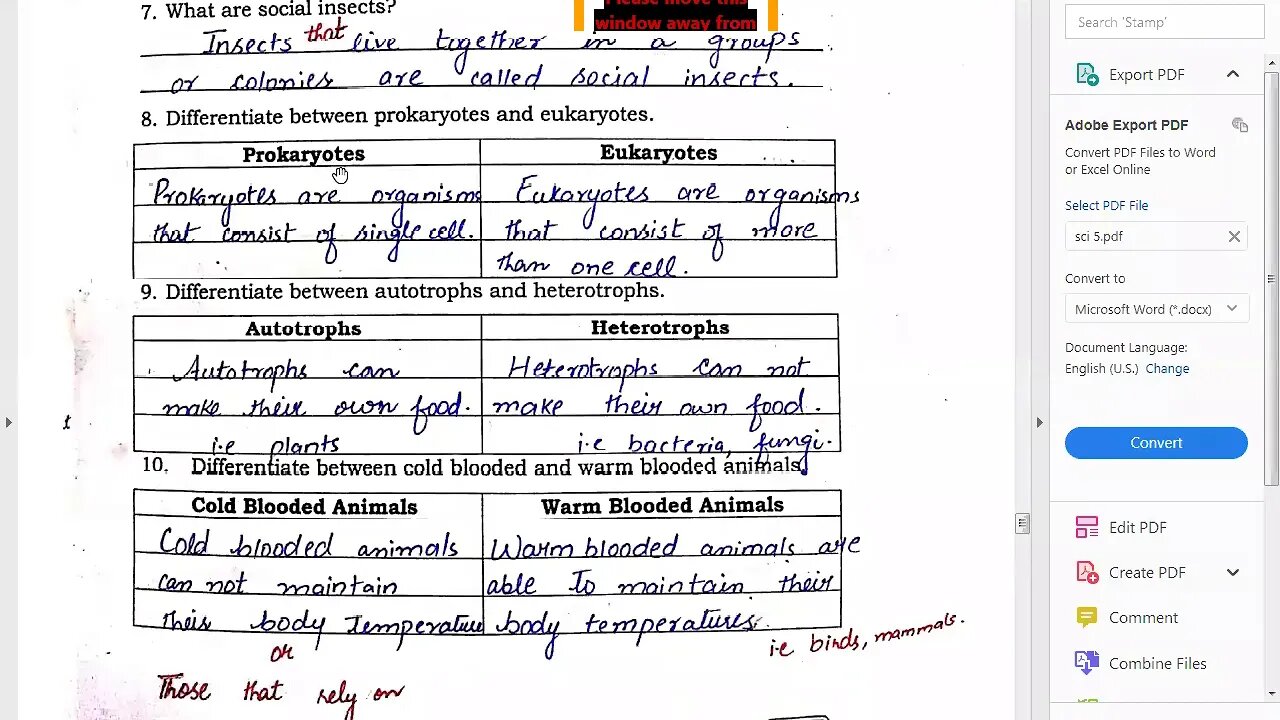 7. What are social insects?
Please move this
window away from
Insects that live together in a groups
or colonies are called social insects.
8. Differentiate between prokaryotes and eukaryotes.
Prokaryotes
Eukaryotes
Prokaryotes are organisms
that consist of single cell.
Eukaryotes are organisms
that consist of more
than one cell.
9. Differentiate between autotrophs and heterotrophs.
Autotrophs
Heterotrophs
Autotrophs can
make their own food.
i.e plants
Heterotrophs can not
make their own food.
i.e bacteria, fungi.
10. Differentiate between cold blooded and warm blooded animals.
Cold Blooded Animals
Warm Blooded Animals
Cold blooded animals
can not maintain
their body temperature
or
Those that rely on
Warm blooded animals are
able to maintain their
body temperatures.
i.e birds, mammals.
Search 'Stamp'
Export PDF
Adobe Export PDF
Convert PDF Files to Word
or Excel Online
Select PDF File
sci 5.pdf
Convert to
Microsoft Word (*.docx)
Document Language:
English (U.S.) Change
Convert
Edit PDF
Create PDF
Comment
Combine Files